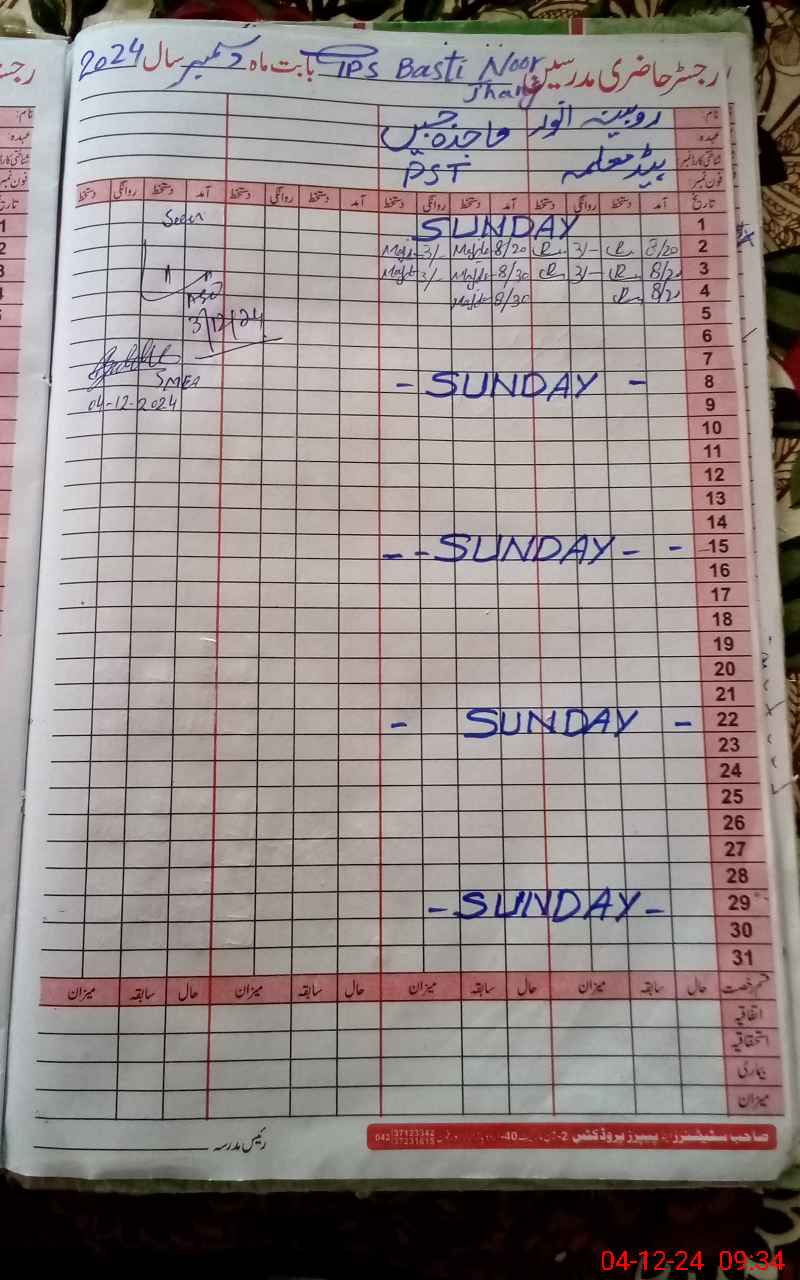 رجسٹر حاضری مدرسین TPS Basti Noor Jhang بابت ماہ دسمبر سال 2024
نام:
روبینہ انور
ماجدہ جبیں
عہدہ:
شناختی کارڈ نمبر
فون نمبر:
ہیڈ معلمہ
PST
تاریخ آمد دستخط روانگی دستخط آمد دستخط روانگی دستخط آمد دستخط روانگی دستخط آمد دستخط روانگی دستخط
1 SUNDAY Seen
2 8/20 3/- 8/20 3/-
3 8/20 3/- 8/30 3/-
4 8/20 8/30
5 3/12/24
6
7
8 - SUNDAY - SMEA
9 04-12-2024
10
11
12
13
14
15 - - SUNDAY - -
16
17
18
19
20
21
22 - SUNDAY -
23
24
25
26
27
28
29 - SUNDAY -
30
31
قسم رخصت حال سابقہ میزان حال سابقہ میزان حال سابقہ میزان حال سابقہ میزان
اتفاقیہ
استحقاقیہ
بیماری
میزان
رئیس مدرسہ
صاحب سٹیشنرز اینڈ پیپرز پروڈکٹس
042 37123342
37231615
04-12-24 09:34